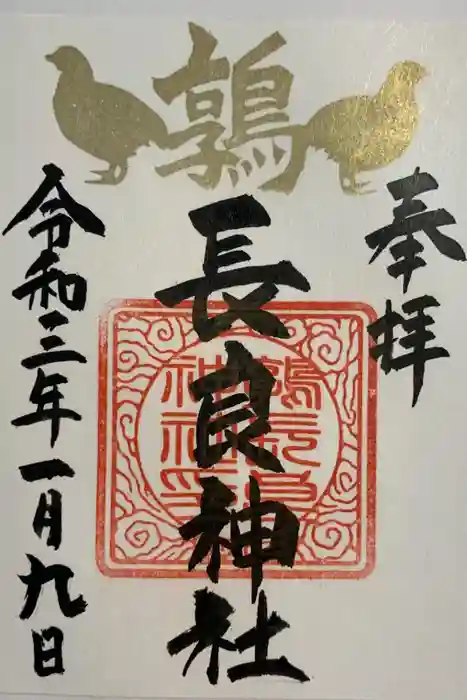 奉拝
鶉
長良神社
令和三年一月九日